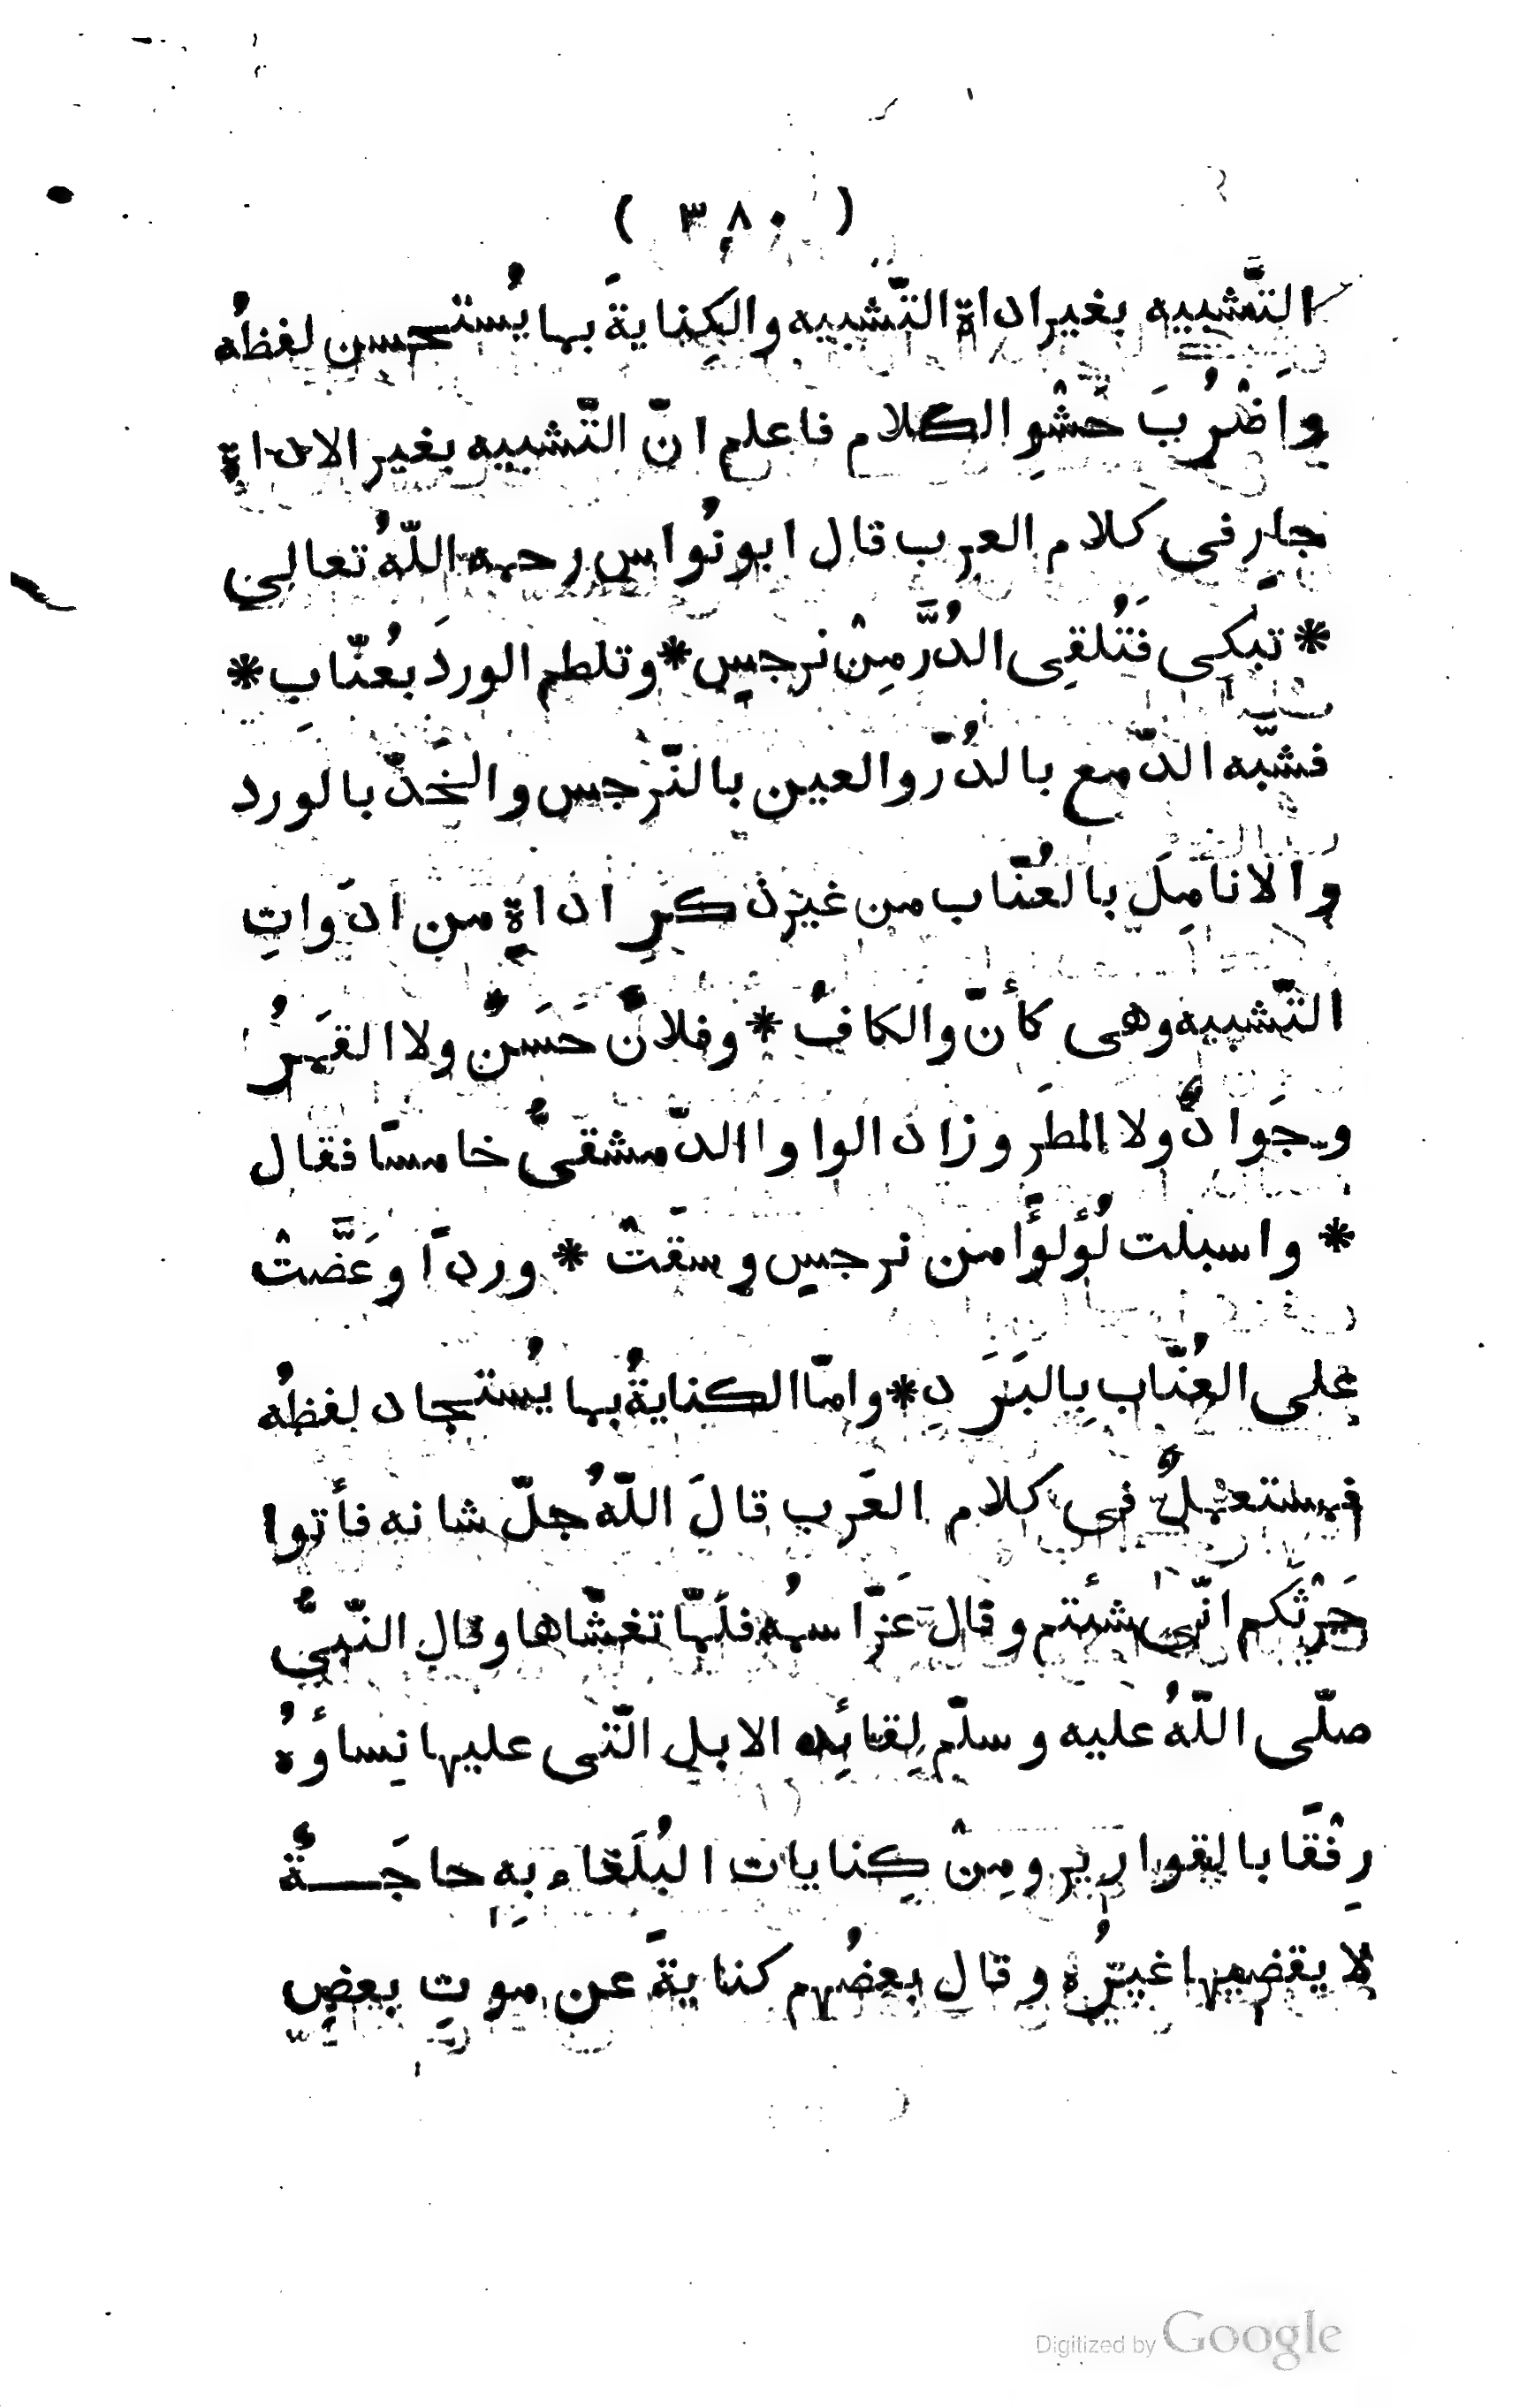 ( ٣٨٠ )
التَّشبيه بغير اداة التّشبيه والكِنايةَ بما يُستحسن لفظُه
واضْرُبَ حَشْوِ الكلام فاعلم انّ التّشبيه بغير الاداة
جارٍ في كلام العرب قال ابو نُواس رحمه اللّهُ تعالى
* تبكى فتُلقِى الدُرَّ مِنْ نرجسٍ * وتلطم الوردَ بعُنّابِ *
فشبّه الدّمع بالدُرّ والعين بالنّرجس والخَدّ بالورد
والانامِلَ بالعُنّاب من غيْرِ ذكرِ اداةٍ من ادَواتِ
التّشبيه وهى كأنّ والكافُ * وفلانٌ حَسَنٌ ولا القَمَرُ
وجَوادٌ ولا المطَر وزاد الواواالدّمشقىُّ خامسًا فقال
* واسبلت لُؤلؤًا من نرجسٍ وسقَتْ * وردًا وعَضَّتْ
على العُنّاب بِالبَرَدِ * وامّا الكنايةُ بما يُستجاد لفظُه
فمستعملٌ فى كلام العَرب قالَ اللّهُ جلّ شانه فأتوا
حَرْثَكم انّى شئتم وقال عَزّ اسمُه فلَمّا تغشّاها وقال النّبىُّ
صلّى اللّهُ عليه وسلّم لِقائِد الابل الّتى عليها نِساؤُهُ
رِفْقًا بالقوارير ومِنْ كِنايات البُلَغاء بِهِ حاجَـةٌ
لا يقضيها غيرُه وقال بعضُهم كنايةً عن موتِ بعضِ
Digitized by Google